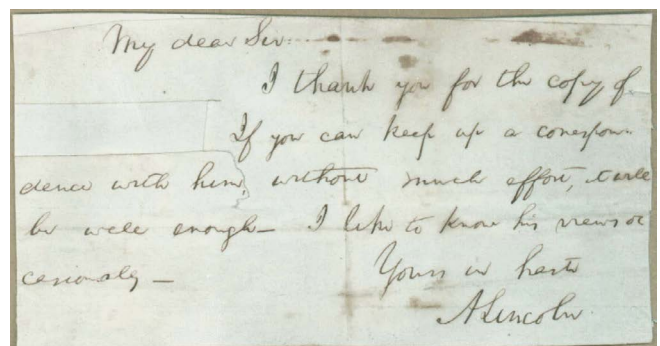 My dear Sir:
I thank you for the copy of
If you can keep up a correspon
dence with him, without much effort, it will
be well enough— I like to know his views oc
casionally—
Yours in haste
A Lincoln